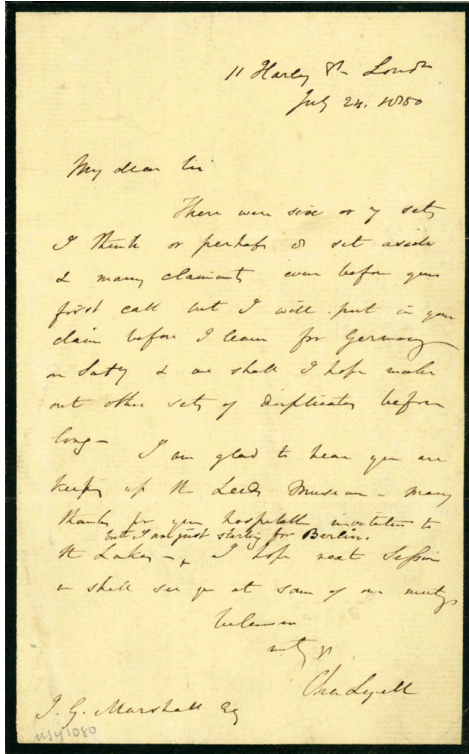 11 Harley St. Londn
July 24. 1850
My dear Sir
There were six or 7 sets
I think or perhaps 8 set aside
& many claimants even before your
first call but I will put in your
claim before I leave for Germany
on Saty & we shall I hope make
out other sets of duplicates before
long – I am glad to hear you are
keeping up the Leeds Museum – many
thanks for your hospitable invitation to
but I am just starting for Berlin.
the Lakes – & I hope next Session
we shall see you at some of our meetgs
believe me
Cha Lyell
J. G. Marshall Esq